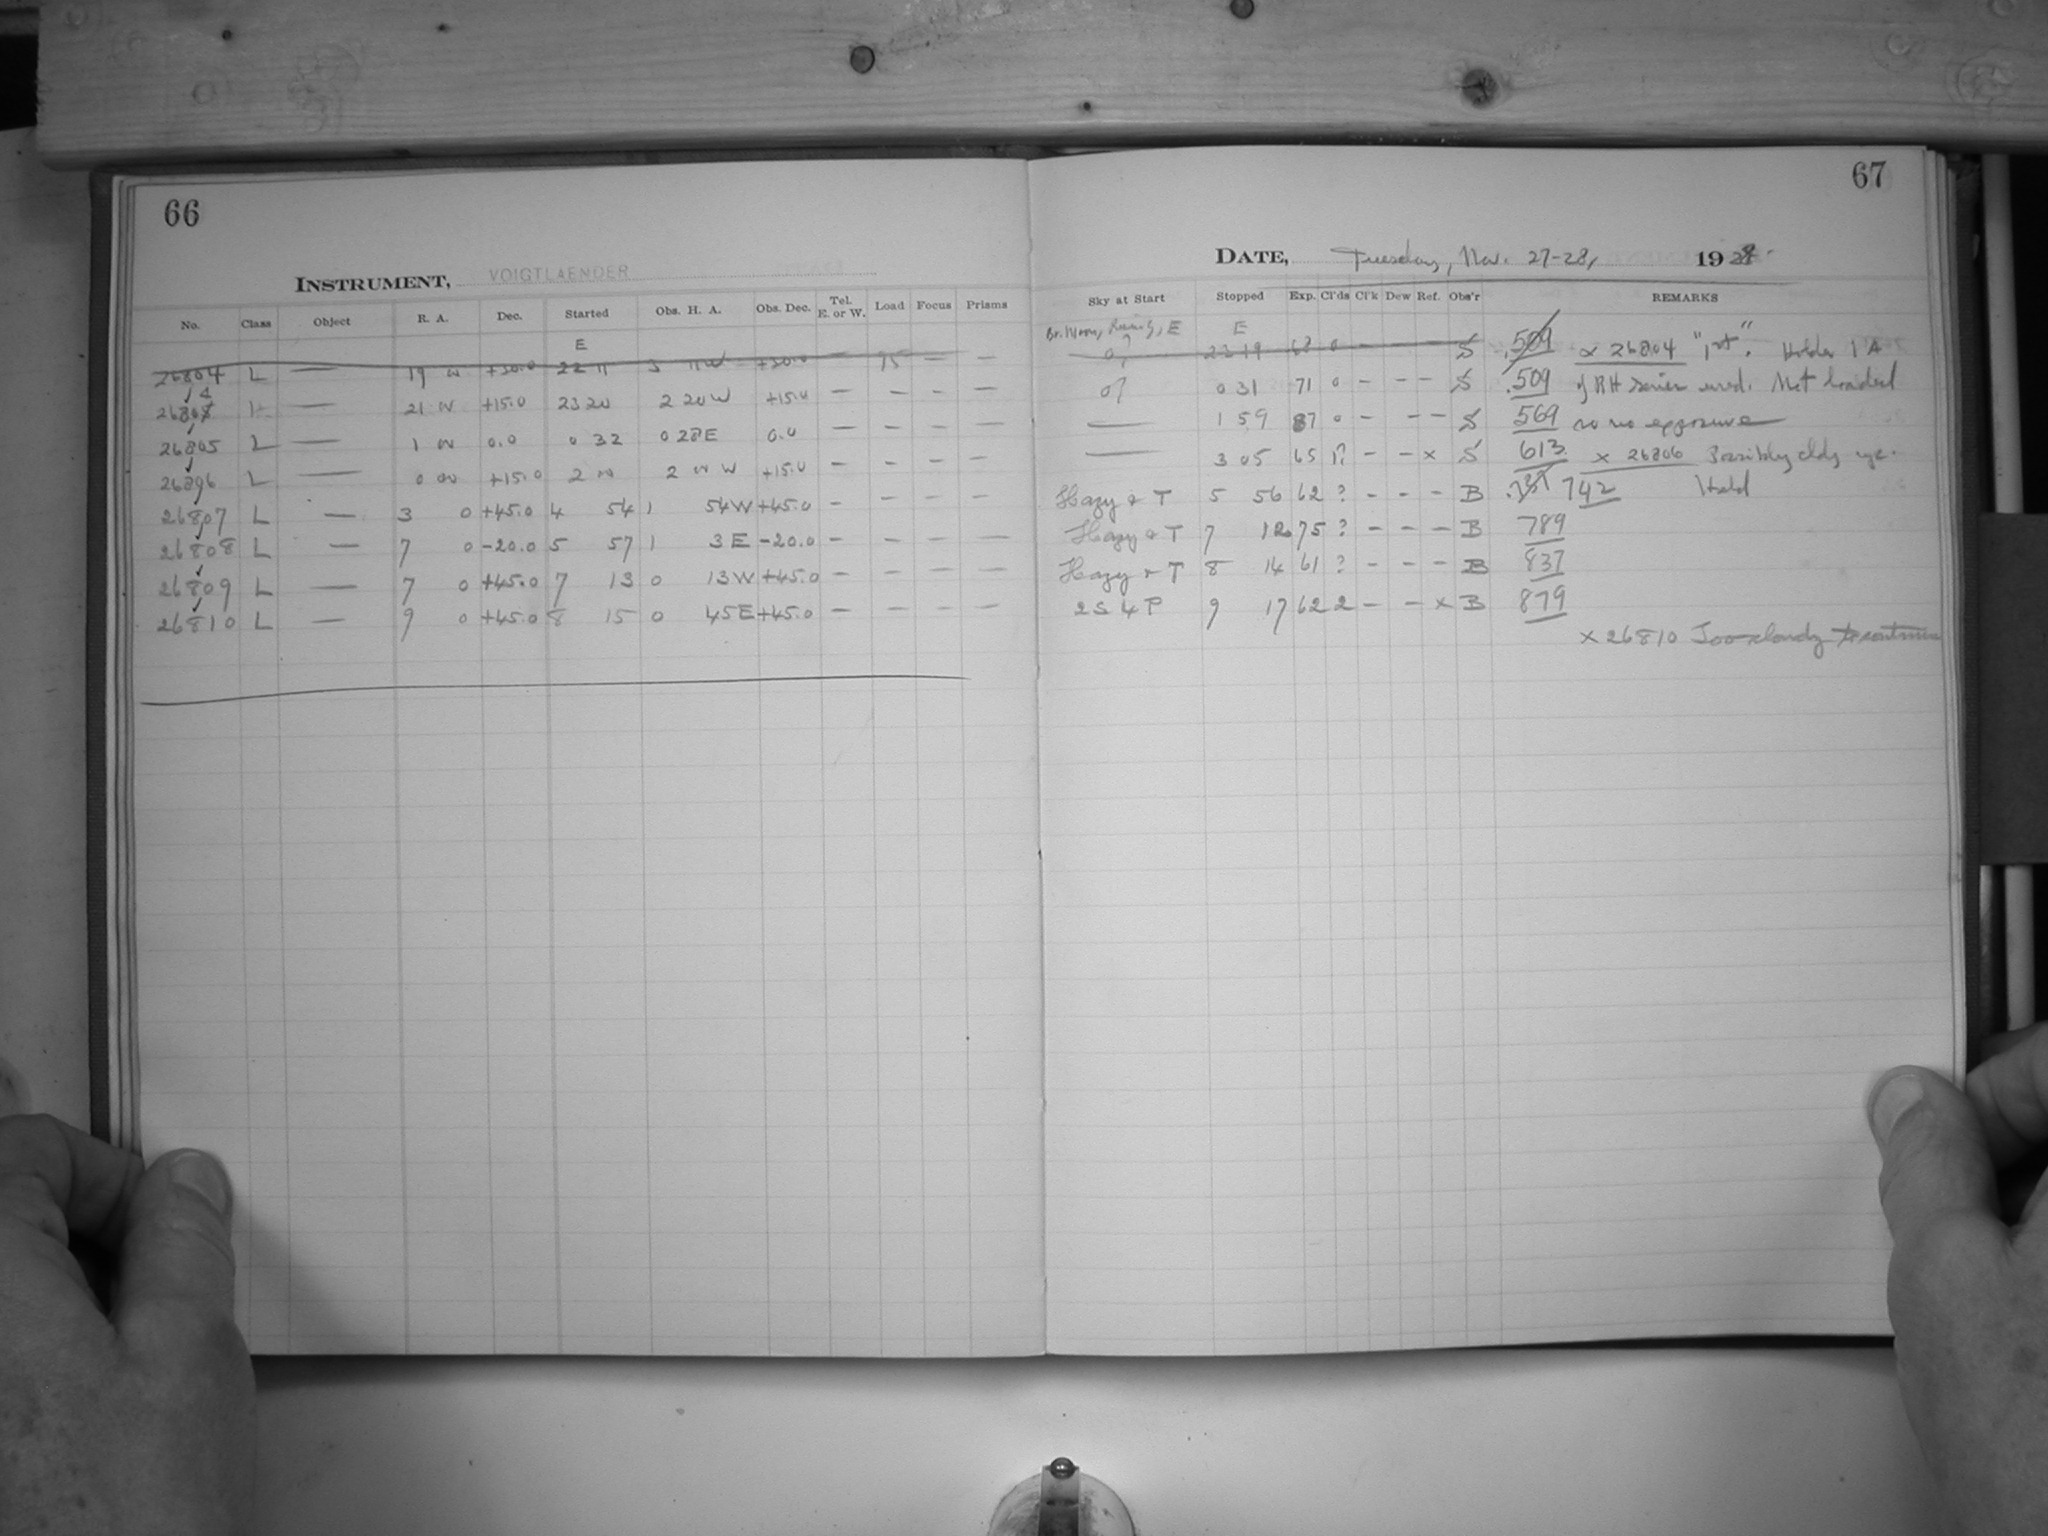 66
INSTRUMENT, VOIGTLAENDER
No. Class Object R. A. Dec. Started Obs. H. A. Obs. Dec. Tel. E. or W. Load Focus Prisms
E
26804 L — 19 +30.0 22 11 3 11 W +30.0 — 95 — —
2680 — 21 +15.0 23 20 2 20 W +15.0 — — — —
26805 L — 1 0.0 0 32 0 28 E 0.0 — — — —
26806 L — 0 +15.0 2 2 W +15.0 — — — —
26807 L — 3 0 +45.0 4 54 1 54 W +45.0 — — — —
26808 L — 7 0 -20.0 5 57 1 3 E -20.0 — — — —
26809 L — 7 0 +45.0 7 13 0 13 W +45.0 — — — —
26810 L — 9 0 +45.0 8 15 0 45 E +45.0 — — — —
67
DATE, Tuesday, Nov. 27-28, 1928.
Sky at Start Stopped Exp. Cl'ds Cl'k Dew Ref. Obs'r REMARKS
Br. Moon, E E
0? 23 19 68 0 — — — S .509 x 26804 "1st". Holder 1 A
0? 0 31 71 0 - - - S .509 of RH series used. Not loaded
— 1 59 87 0 - - - S 569 no exposure
— 3 05 65 1? - - x S 613 x 26806 Possibly cldy
Hazy & T 5 56 62 ? - - - B 742
Hazy & T 7 12 75 ? - - - B 789
Hazy & T 8 14 61 ? - - - B 837
2S 4P 9 17 62 2 - - x B 879
x 26810 Too cloudy to continue